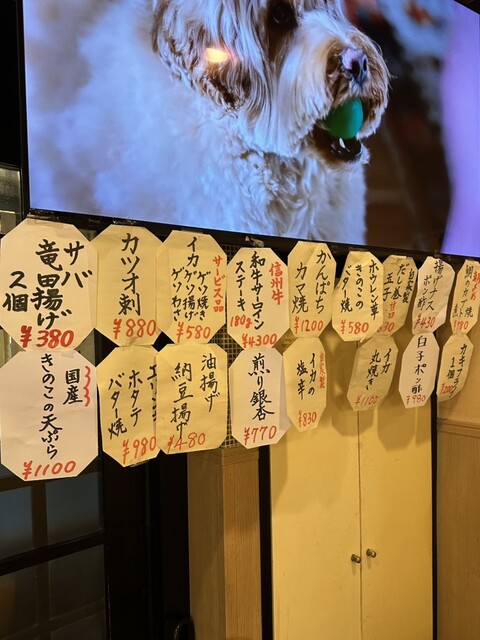 サバ
竜田揚げ
2個
¥380
カツオ刺
¥880
サービス品
イカ
ゲソ焼き
ゲソ揚げ
ゲソわさ
¥580
信州牛
和牛サーロイン
ステーキ
180g
¥4300
かんぱち
カマ焼
¥1200
ホウレン草
きのこの
バター焼
¥580
自家製
だし巻
玉子
揚げナス
ポン酢
¥430
国産
きのこの天ぷら
¥1100
ホタテ
バター焼
¥980
油揚げ
納豆揚げ
¥480
煎り銀杏
¥770
自家製
イカの
塩辛
¥830
イカ
丸焼き
¥1100
白子ポン酢
¥980
カキフライ